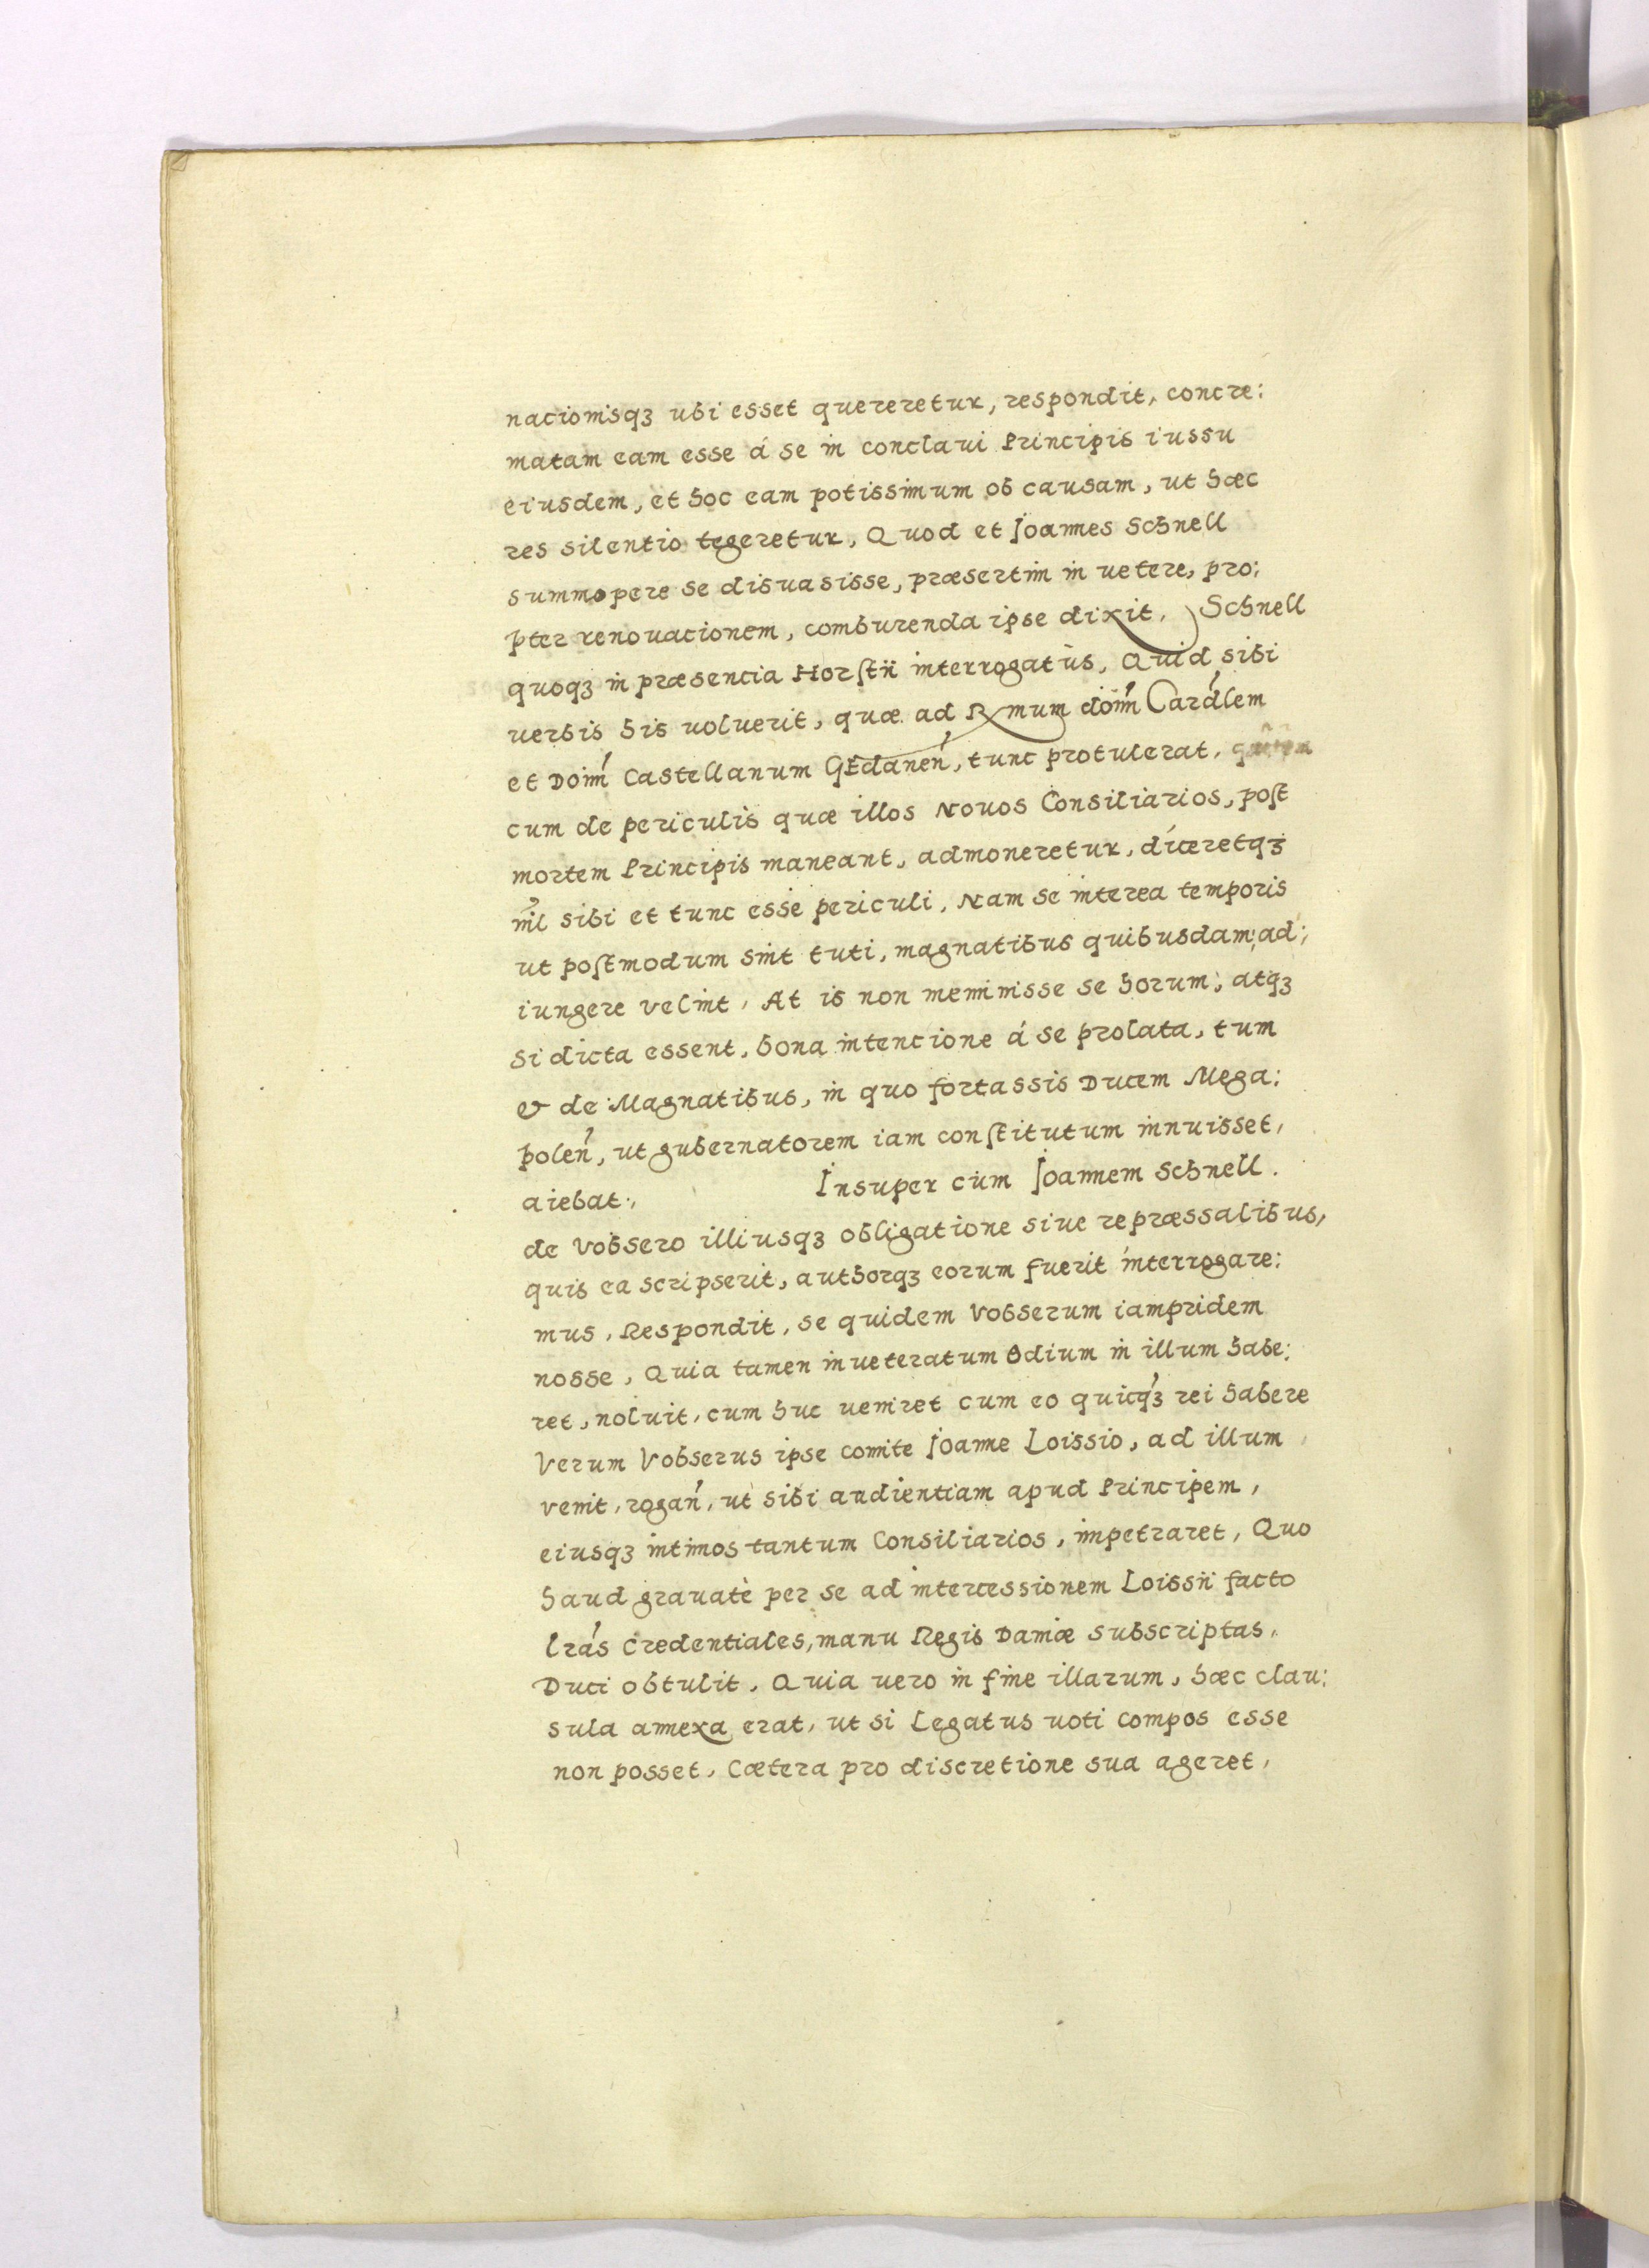 nacionisqꝫ ubi esset quereretur, respondit, concre:
matam eam esse á se in conclaui Principis iussu
eiusdem, et hoc eam potissimum ob causam, ut hæc
res silentio tegeretur, Quod et Joannes Schnell
summopere se disuasisse, præsertim in uetere, pro:
pter renouacionem, comburenda ipse dixit, Schnell
quoqꝫ in præsencia Horstii interrogatus, Quid sibi
uerbis his uoluerit, quæ ad Rmum doim̄ Cardlem
et Doim̄ Castellanum GEdanen̄, tunc protulerat,
cum de periculis quæ illos Nouos Consiliarios, post
mortem Principis maneant, admoneretur, diceretqꝫ
nil sibi et tunc esse periculi, Nam se interea temporis
ut postmodum sint tuti, magnatibus quibusdam, ad:
iungere velint, At is non meminisse se horum, atqꝫ
si dicta essent, bona intencione á se prolata, tum
& de Magnatibus, in quo fortassis Ducem Mega:
polen̄, ut gubernatorem iam constitutum innuisset,
aiebat, Insuper cum Joannem Schnell.
de Vobsero illiusqꝫ obligatione siue repræssalibus,
quis ea scripserit, authorqꝫ eorum fuerit interrogare:
mus, Respondit, se quidem Vobserum iampridem
nosse, Quia tamen inueteratum Odium in illum habe:
ret, noluit, cum huc ueniret cum eo quicqꝫ rei habere
Verum Vobserus ipse comite Joanne Loissio, ad illum
venit, rogan̄, ut sibi audientiam apud Principem,
eiusqꝫ intimos tantum Consiliarios, impetraret, Quo
haud grauatè per se ad intercessionem Loissii facto
lrás Credentiales, manu Regis Daniæ subscriptas,
Duci obtulit, Quia uero in fine illarum, hæc clau:
sula annexa erat, ut si Legatus uoti compos esse
non posset, Cætera pro discretione sua ageret,